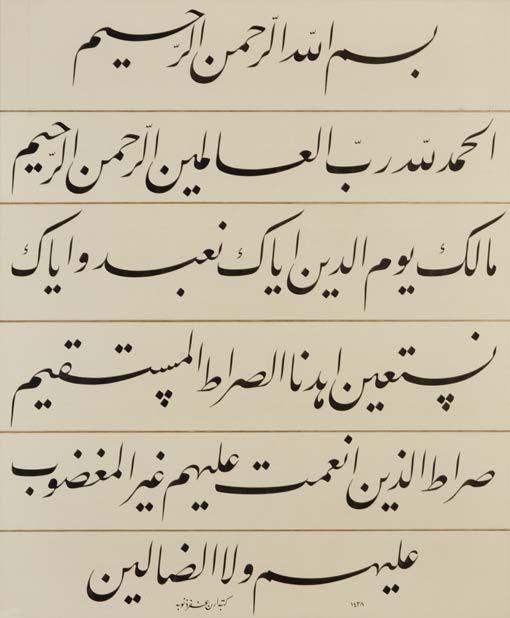 بسم الله الرّحمن الرّحيم
الحمد لله ربّ العالمين الرّحمن الرّحيم
مالك يوم الدين اياك نعبد واياك
نستعين اهدنا الصراط المستقيم
صراط الذين انعمت عليهم غير المغضوب
عليهم ولا الضالين
١٤٣٨
غفر ذنوبه